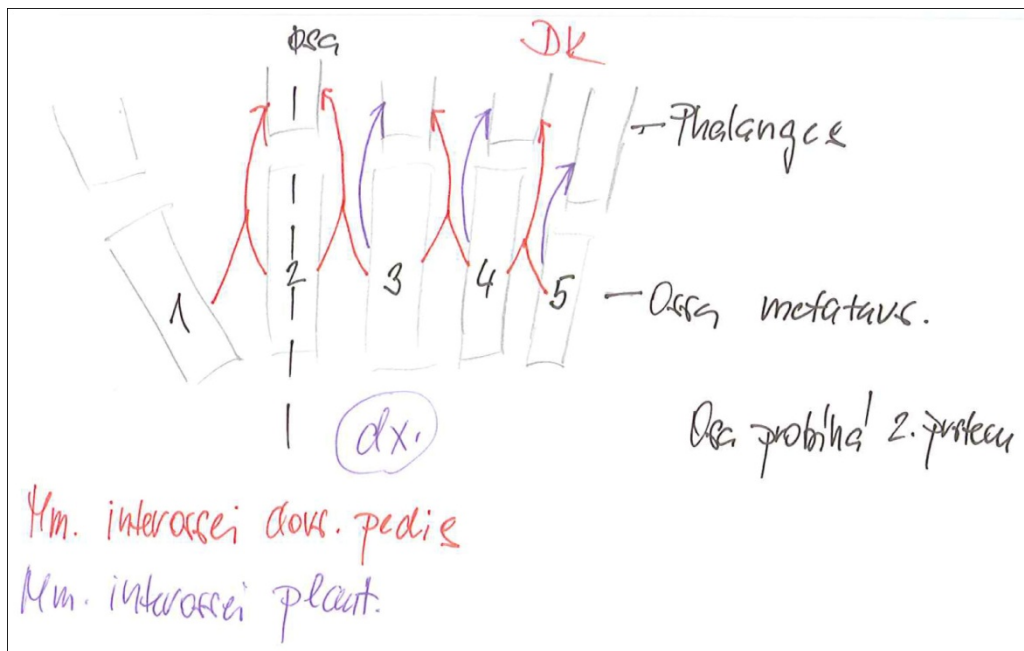 osa
DK
Phalanges
1 2 3 4 5
Ossa metatars.
dx.
Osa probíhá 2. prstem
Mm. interossei dors. pedis
Mm. interossei plant.